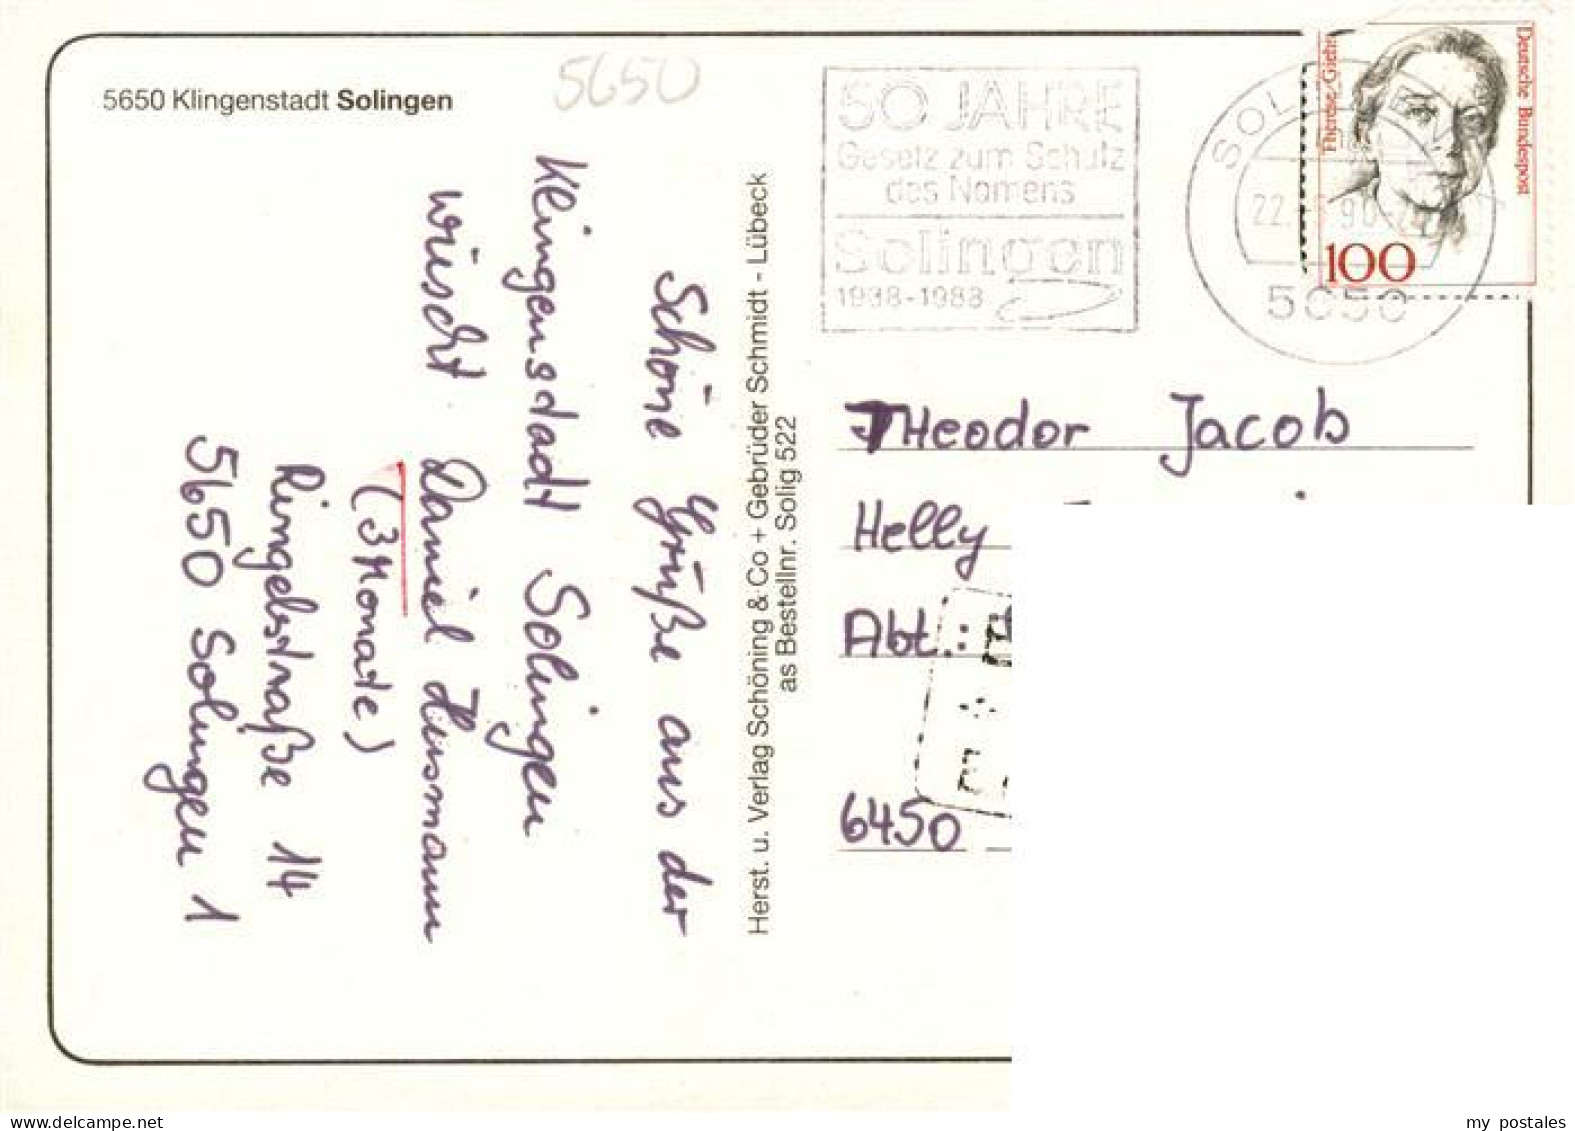 5650 Klingenstadt Solingen
5650
50 JAHRE
Gesetz zum Schutz
des Namens
Solingen
1938-1988
SOLINGEN
22. 90
5650
Deutsche Bundespost
Therese Giehse
100
Schöne Grüße aus der
Klingenstadt Solingen
wüscht Daniel Husmann
(3 Monate)
Ringelstraße 14
5650 Solingen 1
Herst. u. Verlag Schöning & Co + Gebrüder Schmidt - Lübeck
as Bestellnr. Solig 522
THeodor Jacob
Helly
Abt.:
6450
my postales